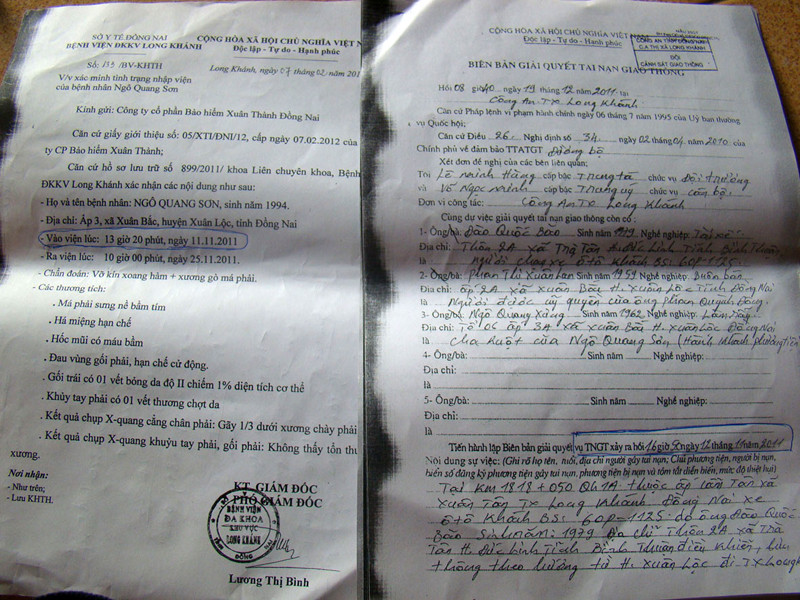 SỞ Y TẾ ĐỒNG NAI
BỆNH VIỆN ĐKKV LONG KHÁNH
Số: 133 /BV-KHTH
V/v xác minh tình trạng nhập viện
của bệnh nhân Ngô Quang Sơn
CỘNG HÒA XÃ HỘI CHỦ NGHĨA VIỆT N
Độc lập - Tự do - Hạnh phúc
Long Khánh, ngày 07 tháng 02 năm 201
Kính gửi: Công ty cổ phần Bảo hiểm Xuân Thành Đồng Nai
Căn cứ giấy giới thiệu số: 05/XTI/ĐNI/12, cấp ngày 07.02.2012 của
ty CP Bảo hiểm Xuân Thành;
Căn cứ hồ sơ lưu trữ số 899/2011/ khoa Liên chuyên khoa, Bệnh
ĐKKV Long Khánh xác nhận các nội dung như sau:
- Họ và tên bệnh nhân: NGÔ QUANG SƠN, sinh năm 1994.
- Địa chỉ: Ấp 3, xã Xuân Bắc, huyện Xuân Lộc, tỉnh Đồng Nai
- Vào viện lúc: 13 giờ 20 phút, ngày 11.11.2011
- Ra viện lúc: 10 giờ 00 phút, ngày 25.11.2011
- Chẩn đoán: Vỡ kín xoang hàm + xương gò má phải.
- Các thương tích:
. Má phải sưng nề bầm tím
. Há miệng hạn chế
. Hốc mũi có máu bầm
. Đau vùng gối phải, hạn chế cử động.
. Gối trái có 01 vết bỏng da độ II chiếm 1% diện tích cơ thể
. Khủy tay phải có 01 vết thương chợt da
. Kết quả chụp X-quang cẳng chân phải: Gãy 1/3 dưới xương chày phải
. Kết quả chụp X-quang khuỷu tay phải, gối phải: Không thấy tổn thư
xương.
Nơi nhận:
- Như trên;
- Lưu KHTH.
KT. GIÁM ĐỐC
PHÓ GIÁM ĐỐC
BỆNH VIỆN
ĐA KHOA
KHU VỰC
LONG KHÁNH
Lương Thị Bình
CỘNG HÒA XÃ HỘI CHỦ NGHĨA VIỆT
Độc lập - Tự do - Hạnh phúc
CÔNG AN TỈNH ĐỒNG NAI
C.A THỊ XÃ LONG KHÁNH
ĐỘI
CẢNH SÁT GIAO THÔNG
BIÊN BẢN GIẢI QUYẾT TAI NẠN GIAO THÔNG
Hồi 08 giờ 40, ngày 19 tháng 12 năm 2011 tại
Công An TX Long Khánh
Căn cứ Pháp lệnh vi phạm hành chính ngày 06 tháng 7 năm 1995 của Uỷ ban thường
vụ Quốc hội;
Căn cứ Điều 26. Nghị định số 34. ngày 02/04/2010 của
Chính phủ về đảm bảo TTATGT Đường bộ
Xét đơn đề nghị của các bên liên quan;
Tôi Lê Minh Hàng cấp bậc Trung tá chức vụ Đội trưởng
và Võ Ngọc Minh cấp bậc Trung úy chức vụ cán bộ.
Đơn vị công tác: Công An TX Long Khánh
Cùng dự việc giải quyết tai nạn giao thông còn có
1- Ông/bà: Đào Quốc Bảo Sinh năm 1979 Nghề nghiệp: Tài xế
Địa chỉ: Thôn 2A xã Trà Tân H. Đức Linh Tỉnh Bình Thuận
là người chạy xe ôtô khách BS: 60P-1125.
2- Phan Thị Xuân Lan Sinh năm 1959 Nghề nghiệp: Buôn bán
Địa chỉ: ấp 2A xã Xuân Bắc H. Xuân Lộc Tỉnh Đồng Nai
là Người được uỷ quyền của ông Phan Quỳnh Dũng.
3- Ông/bà: Ngô Quang Xứng Sinh năm 1962 Nghề nghiệp: Làm rẫy
Địa chỉ: Tổ 06 ấp 3A xã Xuân Bắc H. Xuân Lộc Đồng Nai
là Cha Ruột của Ngô Quang Sơn (Hành khách
4- Ông/bà: Sinh năm Nghề nghiệp:
Địa chỉ:
là
5- Ông/bà: Sinh năm Nghề nghiệp:
Địa chỉ:
là
Tiến hành lập Biên bản giải quyết vụ TNGT xảy ra hồi 16 giờ 50 ngày 12 tháng 11 năm 2011
Nội dung sự việc: (Ghi rõ họ tên, tuổi, địa chỉ người gây tai nạn; Chủ phương tiện, người bị nạn,
biển số đăng ký phương tiện gây tai nạn, phương tiện bị nạn và tóm tắt diễn biến, mức độ thiệt hại)
Tại Km 1818 + 050 QL 1A thuộc ấp Tân xã
Xuân Tân TX Long Khánh Đồng Nai xe
ôtô khách BS: 60P-1125 do ông Đào Quốc
Bảo Sinh năm: 1979 Địa chỉ Thôn 2A xã Trà
Tân H. Đức Linh Tỉnh Bình Thuận điều khiển, lưu
thông theo hướng từ H. Xuân Lộc đi TX Long K